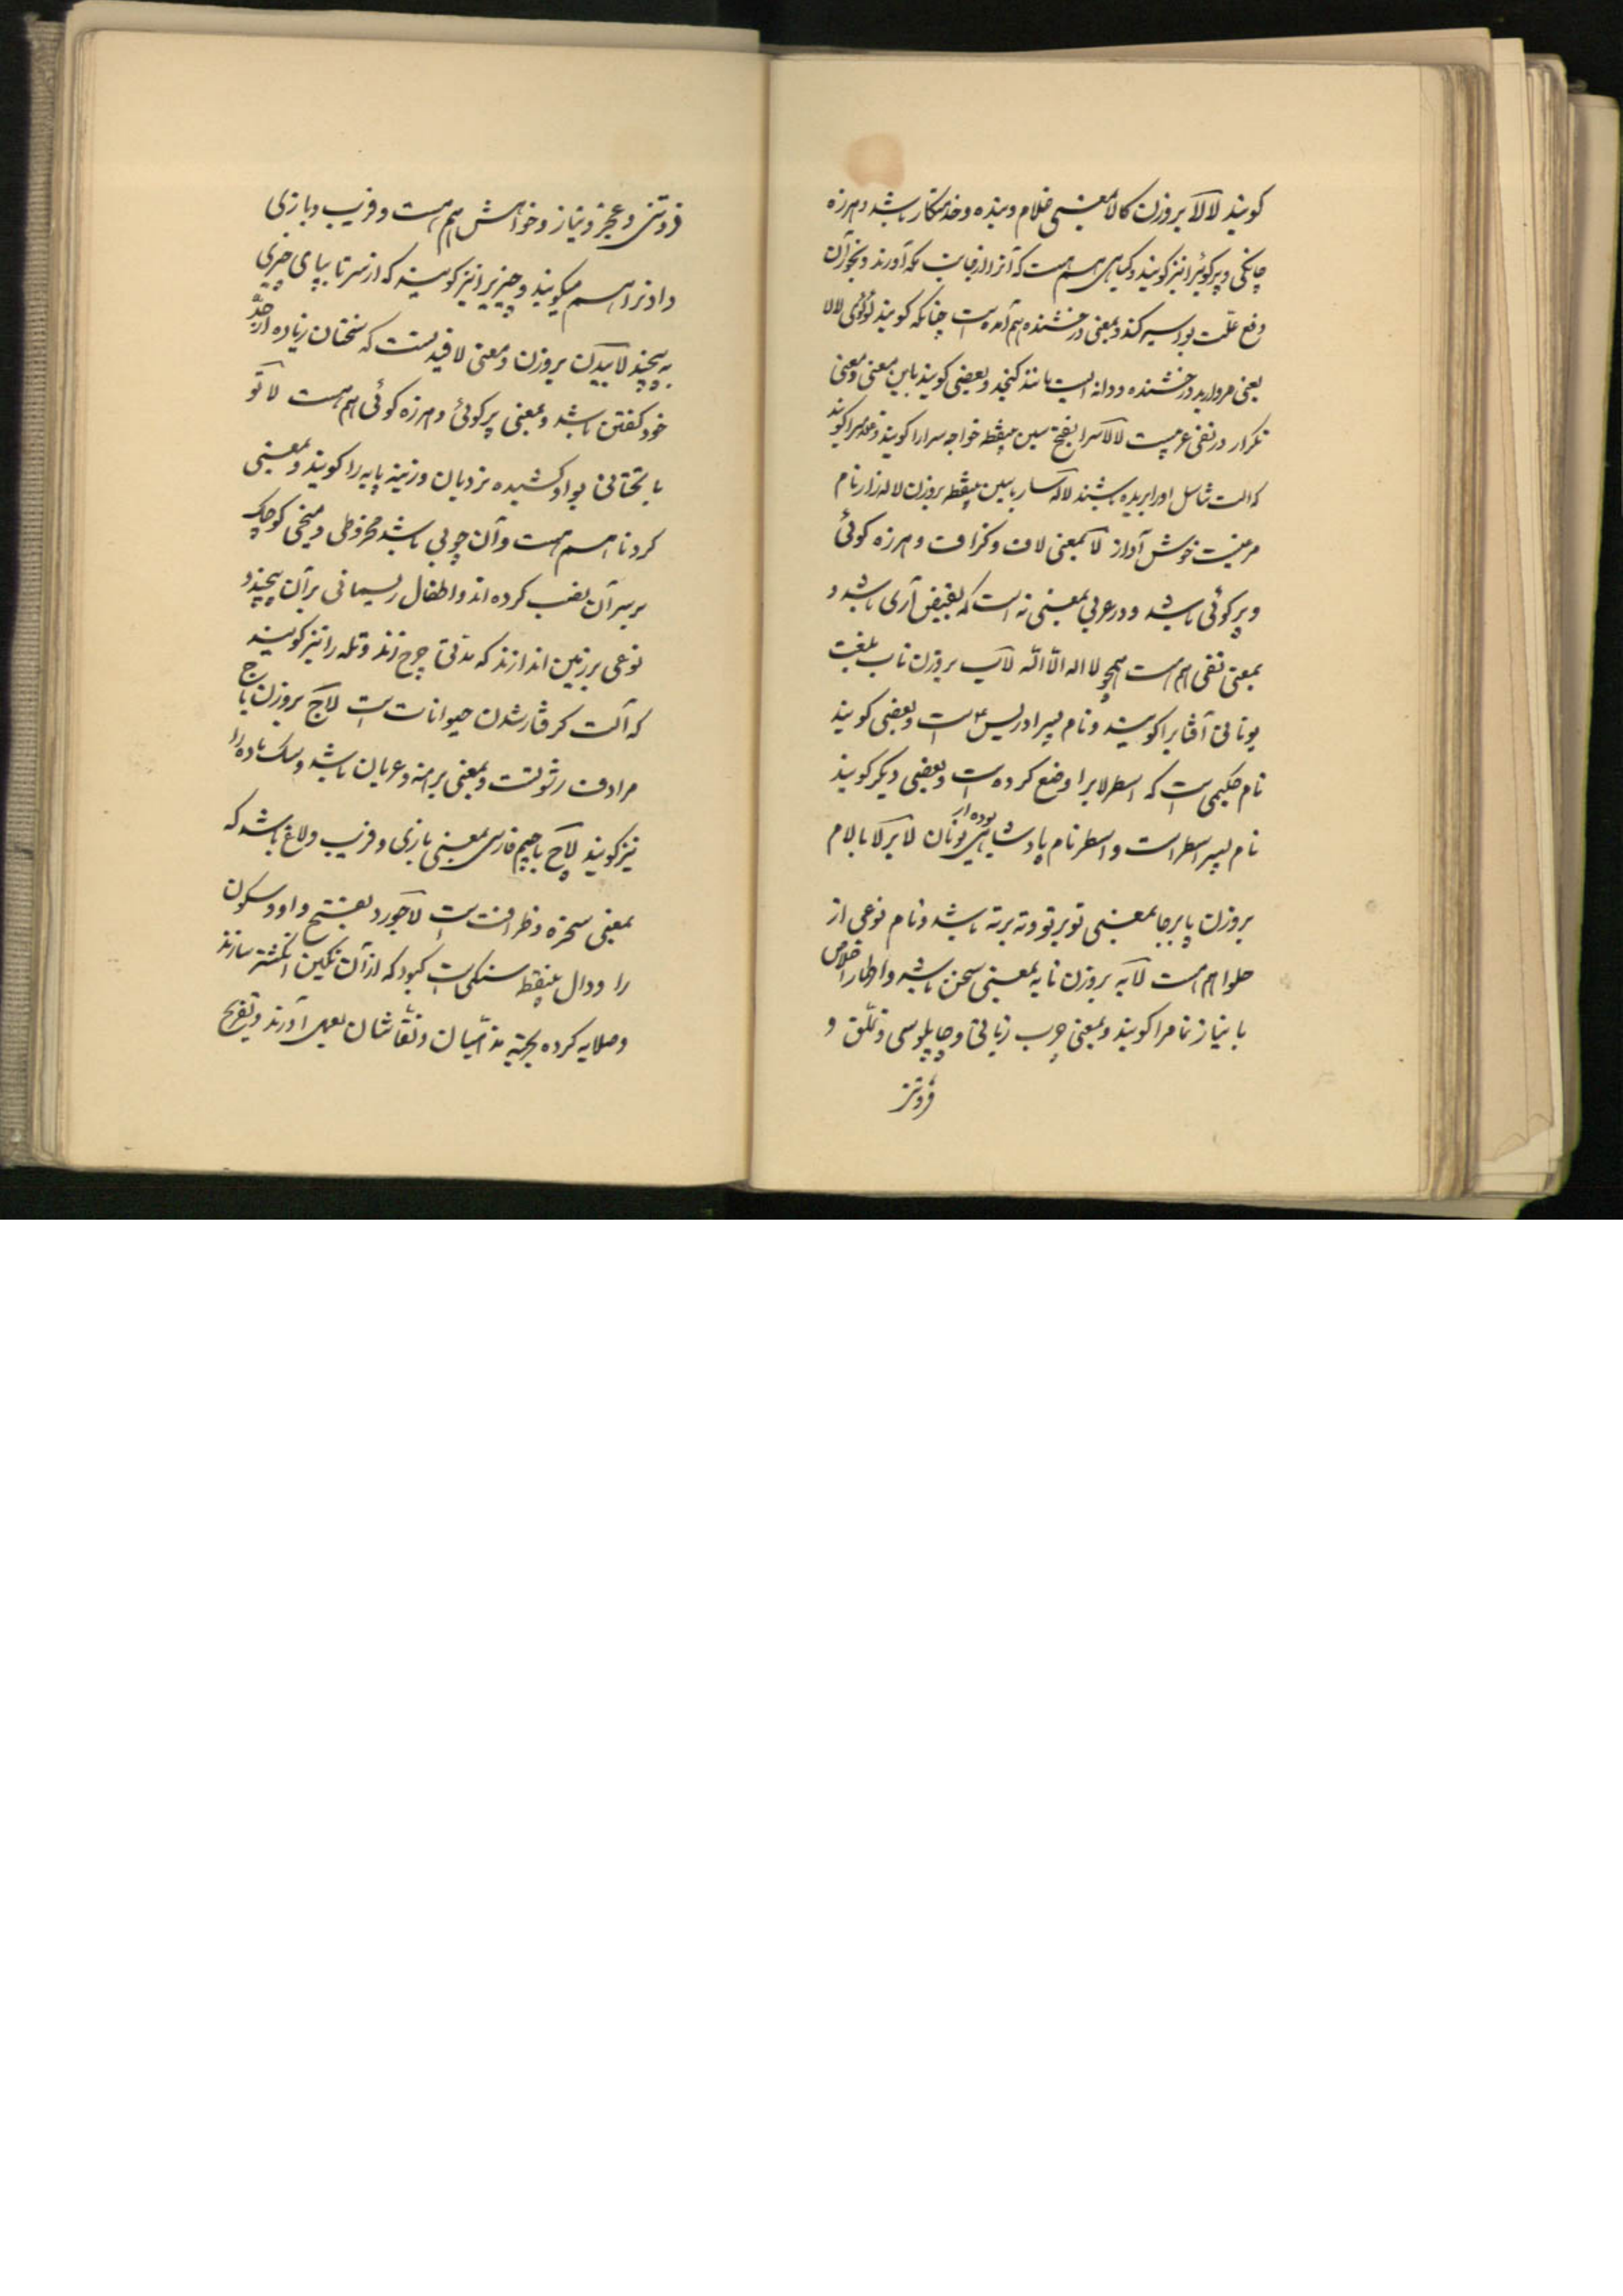 کویند لالا بروزن کالا بمعنی غلام و بنده و خدمتکار باشد و هرزه
چانکی و پرکوئرا نیز کویند و کیاهی هم هست که آنرا از نواحی مکه آورند و بخور آن
دفع علّت بواسیر کند و بمعنی درخشنده هم آمده است چنانکه کویند لؤلؤی لالا
یعنی مروارید درخشنده و دانه ایست مانند کنجد و بعضی کویند باین معنی و معنی
تکرار در نفی عربیست لالاسرا بفتح سین بینقطه خواجه سرارا کویند و غلامیرا کویند
که الت تناسل اورا بریده باشند لالسار با سین بینقطه بروزن لاله زار نام
مرغیست خوش آواز لا بمعنی لاف و کزاف و هرزه کوئی
و پرکوئی باشد و در عربی بمعنی نه است که نقیض آری باشد و
بمعنی نفی هم هست همچو لا اله الّا الله لاب بروزن ناب بلغت
یونانی آفتابرا کویند و نام پسر ادریس ع است و بعضی کویند
نام حکیمی است که اسطرلابرا وضع کرده است و بعضی دیکر کویند
نام پسر اسطر است و اسطر نام پادشاهی بوده از یونان لابرلا با لام
بروزن پابرجا بمعنی تو بر تو و ته بر ته باشد و نام نوعی از
حلوا هم هست لابه بروزن تابه بمعنی سخن باشد و اظهار اخلاص
با نیاز تمامرا کویند و بمعنی چرب زبانی و چاپلوسی و تملّق و
فروتنی
فروتنی و عجز و نیاز و خواهش هم هست و فریب و بازی
دادنرا هم میکویند و چیزیرا نیز کویند که از سر تا بپای چیزی
به پیچند لابیدن بروزن و معنی لافیدنست که سخنان زیاده از حدّ
خود کفتن باشد و بمعنی پرکوئی و هرزه کوئی هم هست لاتو
با تحتانی بواو کشیده نردبان و زینه پایه را کویند و بمعنی
کردنا هم هست و آن چوبی باشد مخروطی و میخی کوچک
بر سر آن نصب کرده اند و اطفال ریسمانی بر آن پیچند و
نوعی بر زمین اندازند که مدتی چرخ زند و تله را نیز کویند
که آلت کرفتار شدن حیوانات است لاج بروزن باج
مرادف رشوتست و بمعنی برهنه و عریان باشد و سک ماده را
نیز کویند لاچ با جیم فارسی بمعنی بازی و فریب و لاغ باشد که
بمعنی سخره و ظرافت است لاجورد بفتح واو و سکون
را و دال بینقطه سنکی است کبود که از آن نکین انکشتر سازند
و صلایه کرده بجهته مذهّبان و نقّاشان بعمل آورند و تفریح